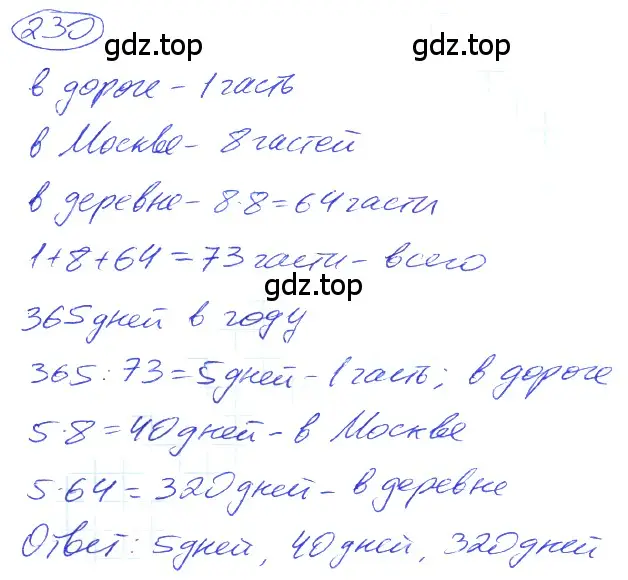 230
gdz.top
gdz.top
в дороге – 1 часть
в Москве – 8 частей
в деревне – 8·8=64 части
1+8+64=73 части – всего
gdz.top
365 дней в году
365:73=5 дней – 1 часть; в дороге
5·8=40 дней – в Москве
5·64=320 дней – в деревне
Ответ: 5 дней, 40 дней, 320 дней